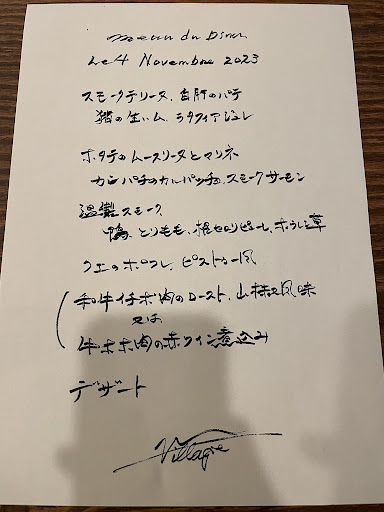 Menu du Diner
Le 4 Novembre 2023
スモークテリーヌ、白肝のパテ
猪の生ハム、ラタフィアジュレ
ホタテのムースリーヌとマリネ
カンパチのカルパッチョ、スモークサーモン
温製スモーク
鴨、とりもも、根セロリピューレ、ホウレン草
クエのポワレ、ピストゥー風
和牛イチボ肉のロースト、山椒風味
又は
牛ホホ肉の赤ワイン煮込み
デザート
Village